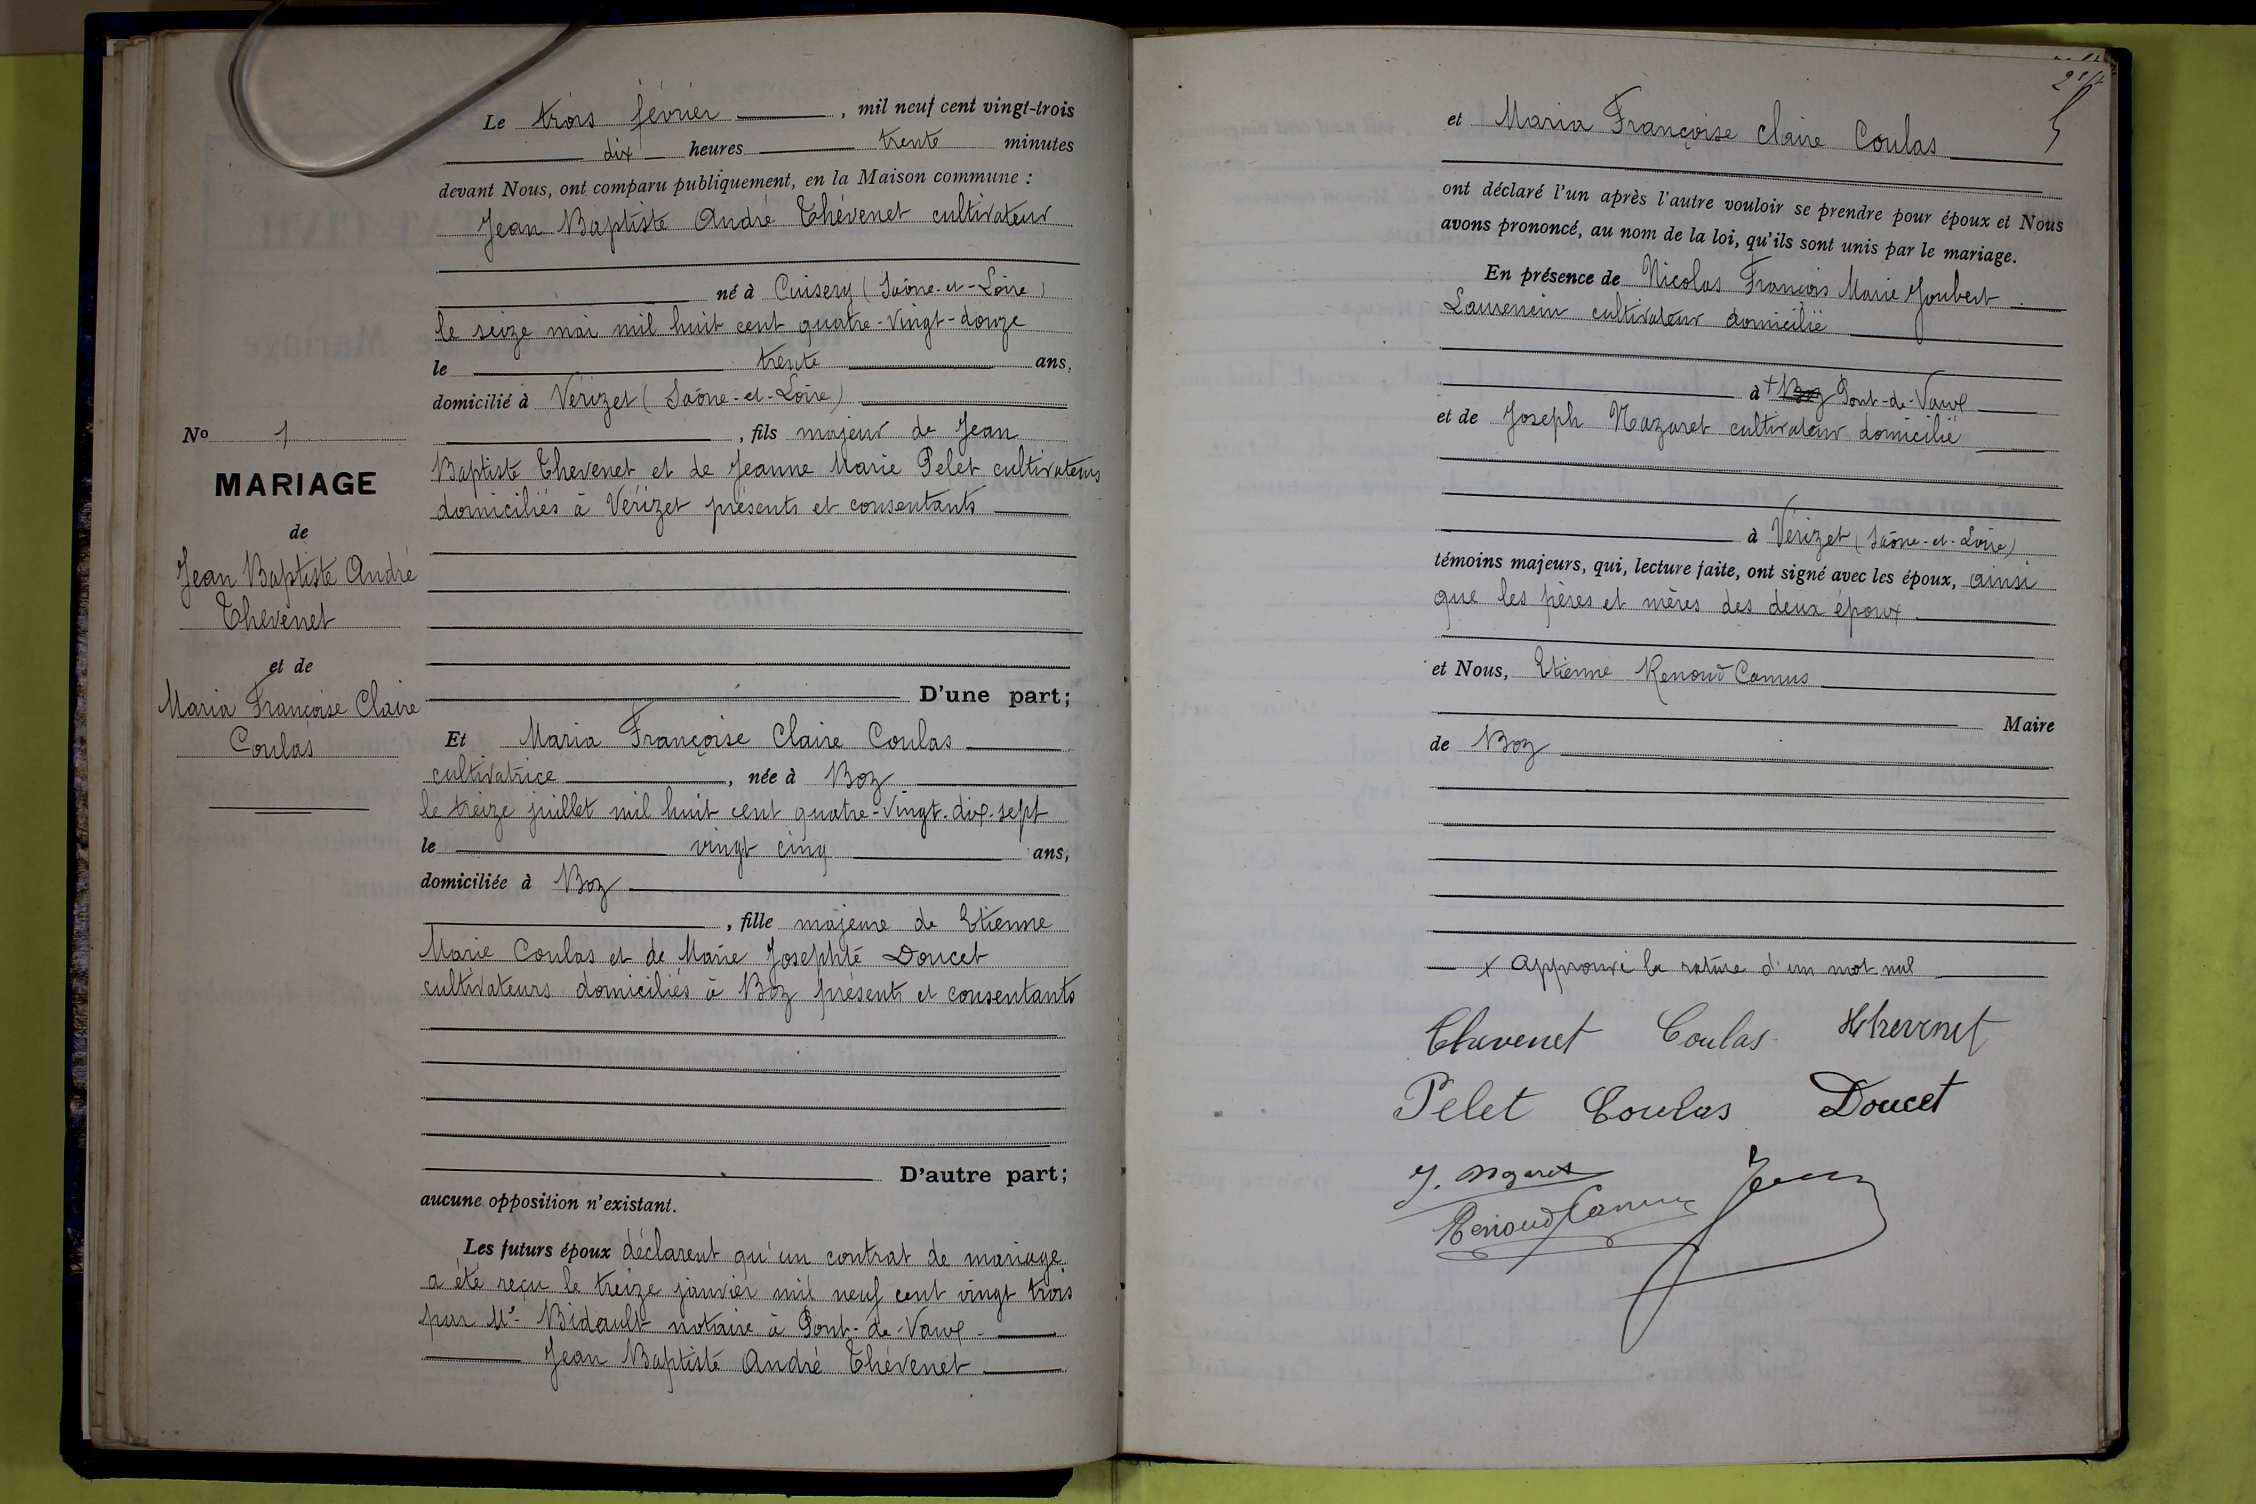 Le trois février, mil neuf cent vingt-trois
dix heures trente minutes
devant Nous, ont comparu publiquement, en la Maison commune :
Jean Baptiste André Thévenet cultivateur
né à Cuisery (Saône-et-Loire)
le seize mai mil huit cent quatre-vingt-douze
le trente ans,
domicilié à Vérizet (Saône-et-Loire)
, fils majeur de Jean
Baptiste Thevenet et de Jeanne Marie Pelet cultivateurs
domiciliés à Vérizet présents et consentants
D'une part;
No 1
MARIAGE
de
Jean Baptiste André
Thévenet
et de
Maria Françoise Claire
Coulas
Et Maria Françoise Claire Coulas
cultivatrice, née à Boz
le treize juillet mil huit cent quatre-vingt-dix-sept
le vingt cinq ans,
domiciliée à Boz
, fille majeure de Etienne
Marie Coulas et de Marie Josephte Doucet
cultivateurs domiciliés à Boz présents et consentants
D'autre part;
aucune opposition n'existant.
Les futurs époux déclarent qu'un contrat de mariage
a été reçu le treize janvier mil neuf cent vingt trois
par Me Bidault notaire à Pont-de-Vaux
Jean Baptiste André Thévenet
et Maria Françoise Claire Coulas
ont déclaré l'un après l'autre vouloir se prendre pour époux et Nous
avons prononcé, au nom de la loi, qu'ils sont unis par le mariage.
En présence de Nicolas François Marie Joubert
Laurencin cultivateur domicilié
à + Boz Pont-de-Vaux
et de Joseph Nazaret cultivateur domicilié
à Vérizet (Saône-et-Loire)
témoins majeurs, qui, lecture faite, ont signé avec les époux, ainsi
que les pères et mères des deux époux
et Nous, Etienne Renoud Camus
Maire
de Boz
x approuvé la rature d'un mot nul
Thevenet Coulas Thevenet
Pelet Coulas Doucet
Renoud Camus